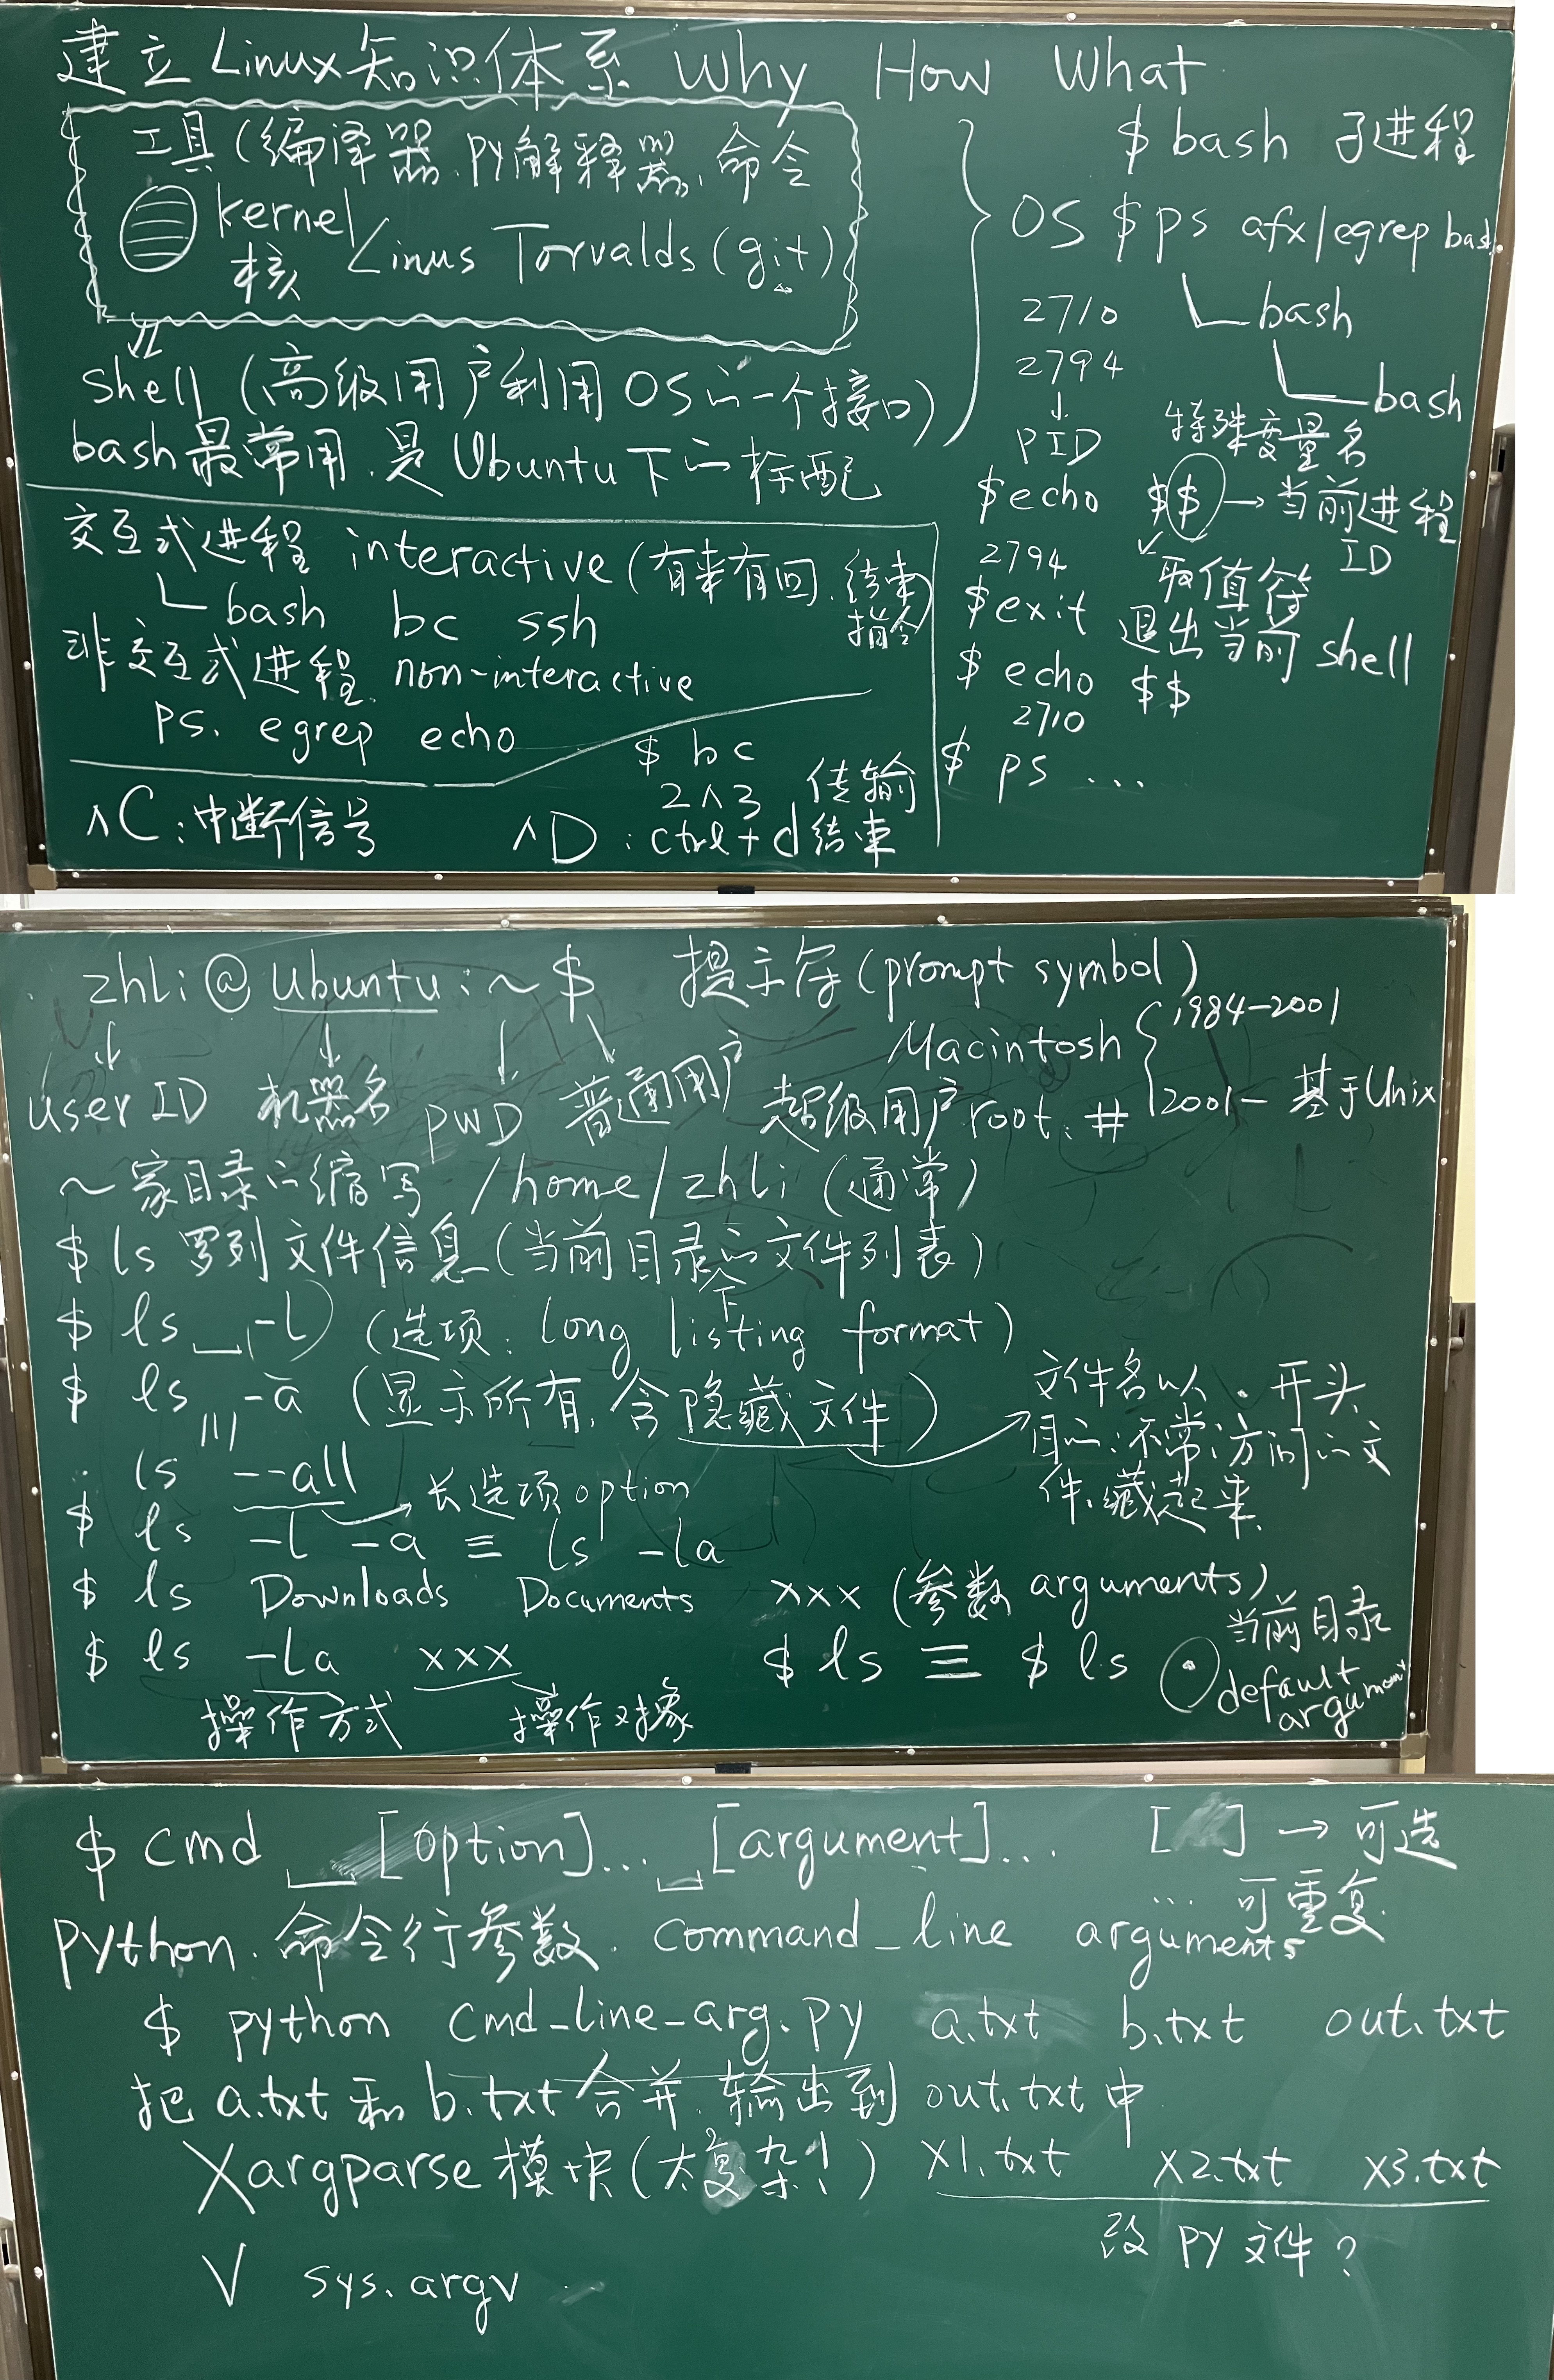 建立Linux知识体系 Why How What
工具(编译器.py解释器,命令
kernel
核 Linus Torvalds(git)
shell (高级用户利用OS的一个接口)
bash最常用.是Ubuntu下的标配
OS
交互式进程 interactive(有来有回.结束指令)
bash bc ssh
非交互式进程. non-interactive
ps. egrep echo
∧C:中断信号
$ bc
2∧3
∧D:ctrl+d 传输结束
$ bash 子进程
$ps afx/egrep bash
2710 bash
2794 bash
↓
PID
特殊变量名
$echo $$ → 当前进程ID
2794 取值符
$exit 退出当前shell
$ echo $$
2710
$ ps ...
zhli@Ubuntu:~$ 提示符(prompt symbol)
user ID 机器名 PWD 普通用户 超级用户root: #
Macintosh { 1984-2001
2001- 基于Unix
~家目录的缩写 /home/zhli (通常)
$ ls 罗列文件信息(当前目录下的文件列表)
$ ls -l (选项: long listing format)
$ ls -a (显示所有,含隐藏文件)
文件名以 . 开头
目的:不常访问的文
件,藏起来
ls --all → 长选项option
$ ls -l -a ≡ ls -la
$ ls Downloads Documents xxx (参数 arguments)
$ ls -la xxx
操作方式 操作对象
$ ls ≡ $ ls .
当前目录
default argument
$ cmd [option]... [argument]... [ ] → 可选
... 可重复
Python.命令行参数. command_line arguments
$ python cmd_line_arg.py a.txt b.txt out.txt
把a.txt和b.txt合并.输出到out.txt中
Xargparse模块(太复杂!) x1.txt x2.txt x3.txt
改PY文件?
V sys.argv